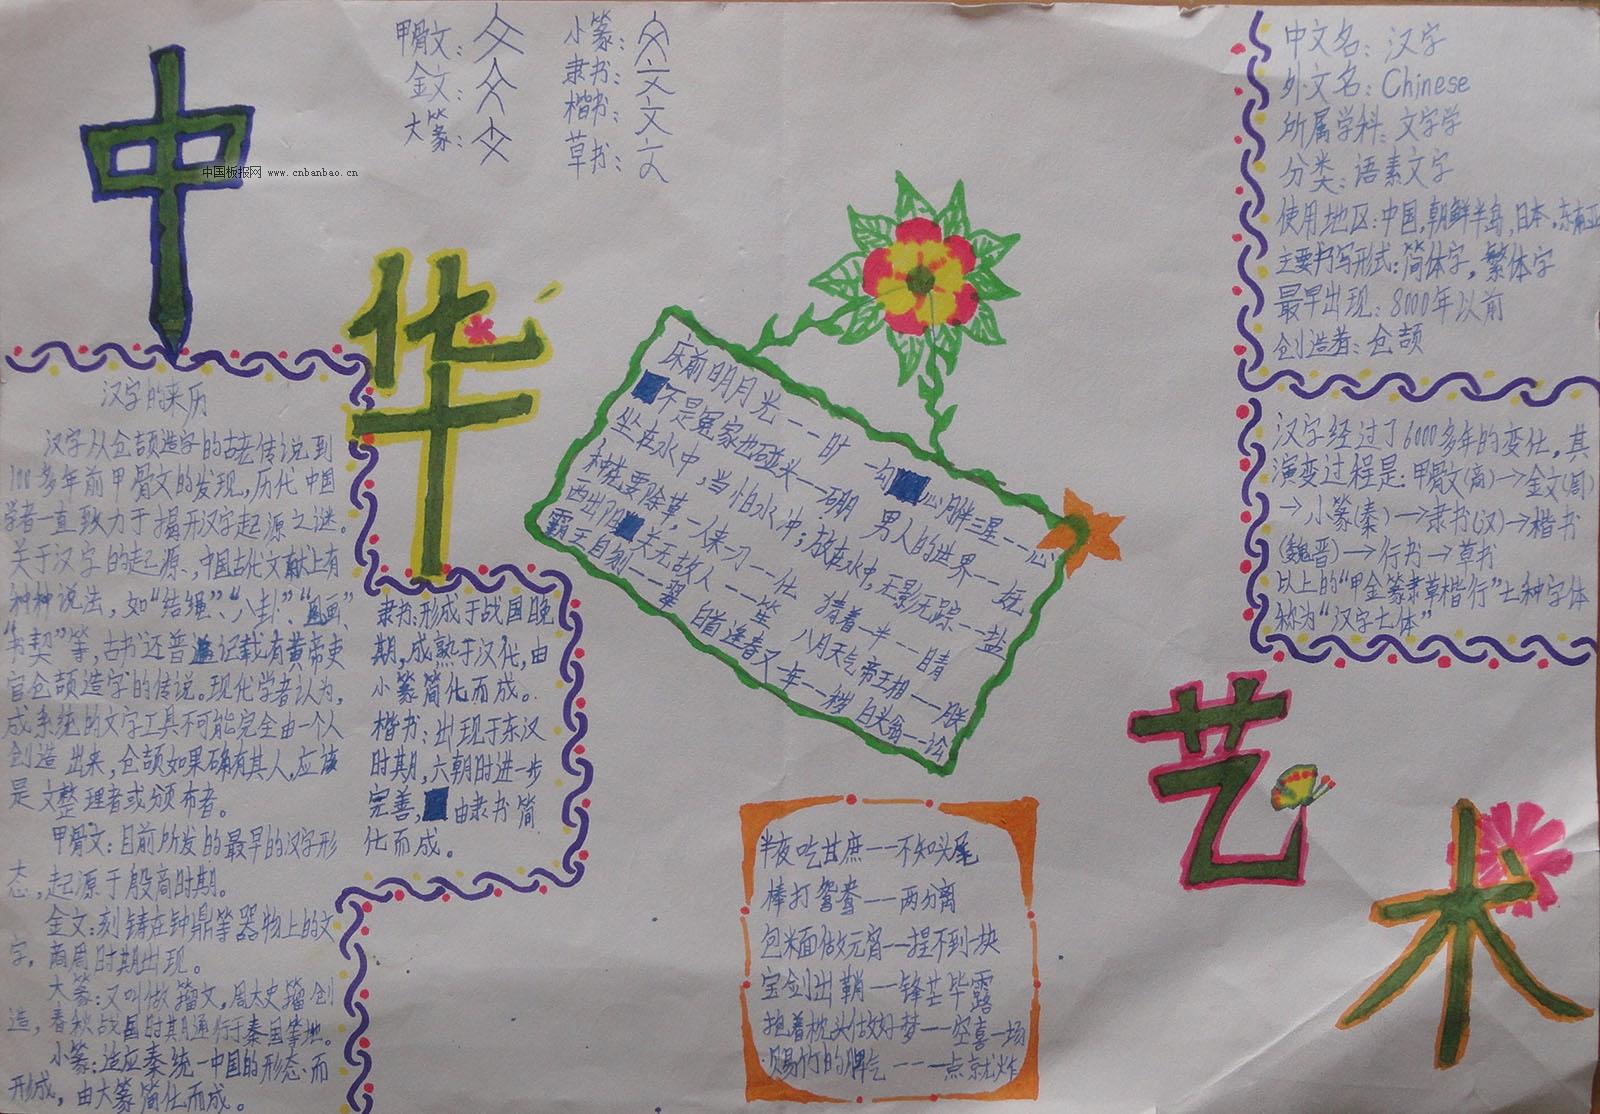 中
华
艺
术
甲骨文：
金文：
大篆：
小篆：
隶书：文
楷书：文
草书：文
中国板报网 www.cnbanbao.cn
汉字的来历
汉字从仓颉造字的古老传说到
100多年前甲骨文的发现，历代中国
学者一直致力于揭开汉字起源之谜。
关于汉字的起源，中国古代文献上有
种种说法，如“结绳”、“八卦”、“图画”、
“书契”等，古书还普遍记载有黄帝史
官仓颉造字的传说。现代学者认为，
成系统的文字工具不可能完全由一个人
创造出来，仓颉如果确有其人，应该
是文整理者或颁布者。
甲骨文：目前所发的最早的汉字形
态，起源于殷商时期。
金文：刻铸在钟鼎等器物上的文
字。商周时期出现。
大篆：又叫做籀文，周太史籀创
造，春秋战国时期通行于秦国等地。
小篆：适应秦统一中国的形态而
形成，由大篆简化而成。
隶书：形成于战国晚
期，成熟于汉代，由
小篆简化而成。
楷书：出现于东汉
时期，六朝时进一步
完善，由隶书简
化而成。
床前明月光——旷 一勾心月伴三星——心
不是冤家也碰头——硼 男人的世界——娚
坐在水中，当怕水冲；放在水中，无影无踪——盐
种桃要除草，一人来一刀——化 猜着一半——睛
西出阳关无故人——笙 八月天气帝王相——胜
霸王自刎——翠 白首逢春又一年——
白头翁——讼
半夜吃甘蔗——不知头尾
棒打鸳鸯——两分离
包米面做元宵——捏不到一块
宝剑出鞘——锋芒毕露
抱着枕头做好梦——空喜一场
竹的脾气——一点就炸
中文名：汉字
外文名：Chinese
所属学科：文字学
分类：语素文字
使用地区：中国，朝鲜半岛，日本，东南亚
主要书写形式：简体字，繁体字
最早出现：8000年以前
创造者：仓颉
汉字经过了6000多年的变化，其
演变过程是：甲骨文(商)→金文(周)
→小篆(秦)→隶书(汉)→楷书
(魏晋)→行书→草书
以上的“甲金篆隶草楷行”七种字体
称为“汉字七体”